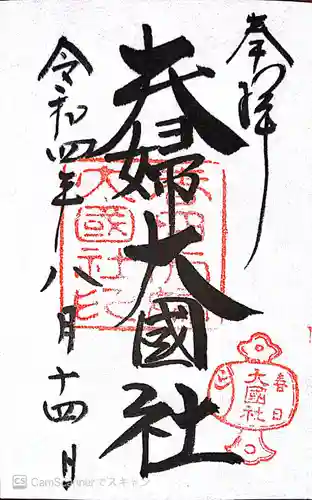 奉拝
夫婦大國社
令和四年八月十四日
春日
大國社
CS CamScannerでスキャン